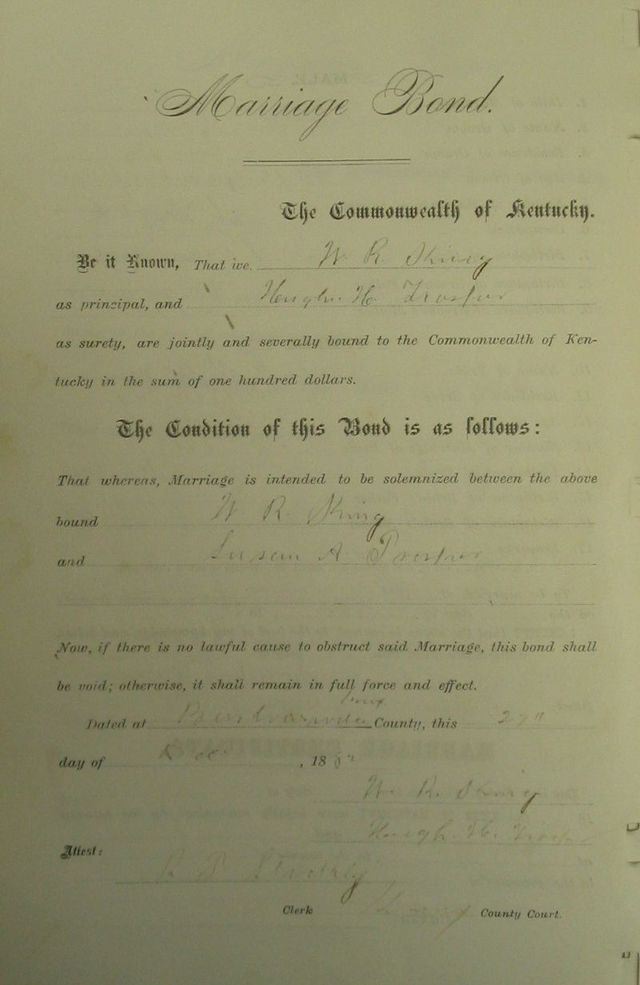 Marriage Bond.
The Commonwealth of Kentucky.
Be it Known, That we W. R. King
as principal, and Hugh H.
as surety, are jointly and severally bound to the Commonwealth of Ken-
tucky in the sum of one hundred dollars.
The Condition of this Bond is as follows:
That whereas, Marriage is intended to be solemnized between the above
bound W R. King
and Susan A
Now, if there is no lawful cause to obstruct said Marriage, this bond shall
be void; otherwise, it shall remain in full force and effect.
Knox
Dated at Barbourville County, this 27
day of Dec , 188
W. R. King
Hugh H.
Attest:
Clerk County Court.